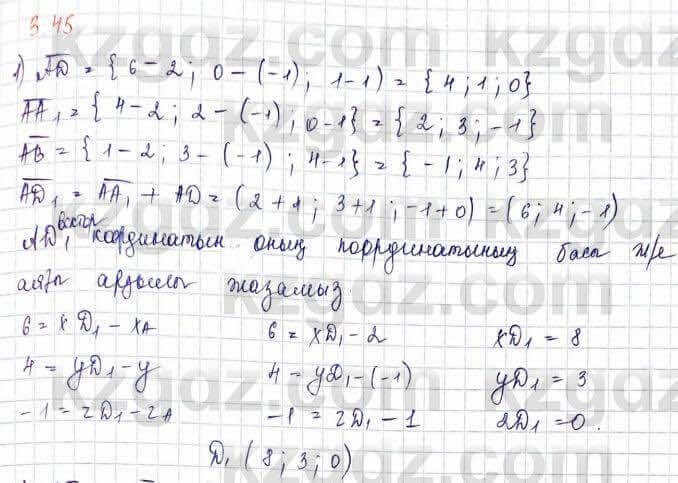 3 45
1) AD = { 6 - 2 ; 0 - (-1) ; 1-1 ) = { 4 ; 1 ; 0}
AA₁ = { 4 - 2 ; 2 - (-1) ; 0-1} = { 2 ; 3 ; -1}
AB = { 1 - 2 ; 3 - (-1) ; 4-1} = { -1 ; 4 ; 3}
AD₁ = AA₁ + AD = (2 + 1 ; 3+1 ; -1+0) = (6 ; 4 ; -1)
AD₁ вектор координатын оның координатының басы ж/е
 арқылы жазамыз.
6 = xD₁ - xA 6 = xD₁ - 2 xD₁ = 8
4 = yD₁ - y 4 = yD₁ - (-1) yD₁ = 3
-1 = zD₁ - zA -1 = zD₁ - 1 zD₁ = 0.
D₁ ( 8 ; 3 ; 0)
kzgdz.com